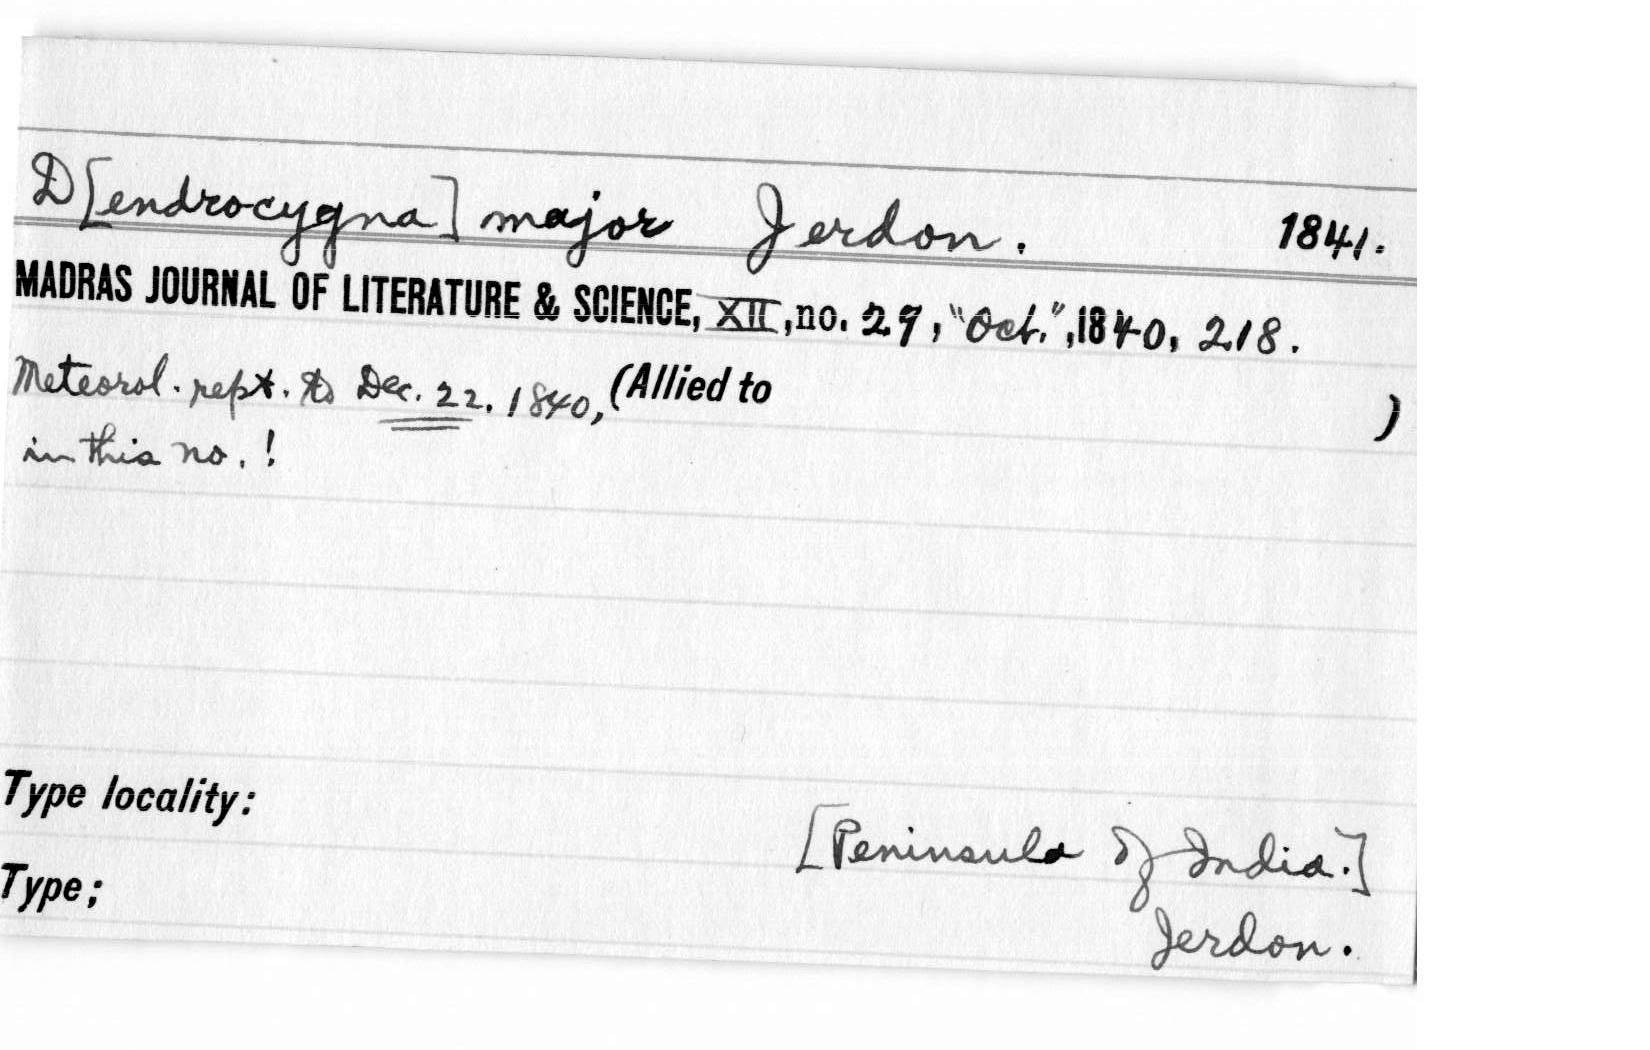 D[endrocygna] major Jerdon. 1841.
MADRAS JOURNAL OF LITERATURE & SCIENCE, XII, no. 29, "Oct.", 1840, 218.
Meteorol. rept. to Dec. 22. 1840, (Allied to )
in this no. !
Type locality:
[Peninsula of India.]
Type;
Jerdon.